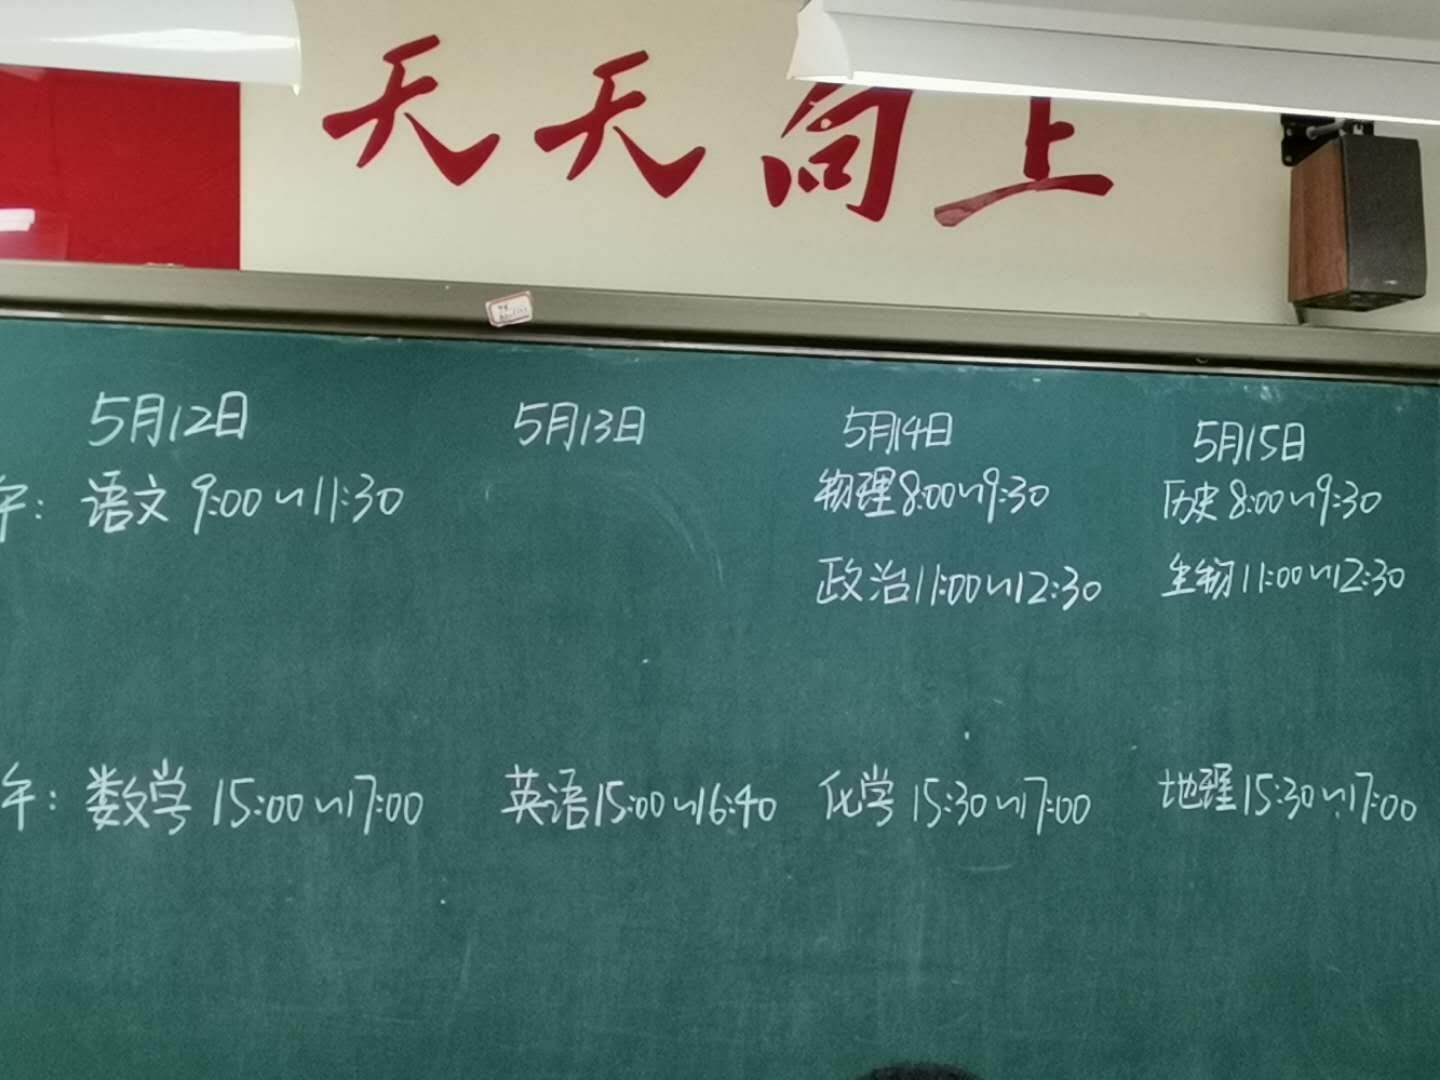 天天向上
5月12日 5月13日 5月14日 5月15日
午: 语文 9:00~11:30 物理 8:00~9:30 历史 8:00~9:30
政治 11:00~12:30 生物 11:00~12:30
午: 数学 15:00~17:00 英语 15:00~16:40 化学 15:30~17:00 地理 15:30~17:00